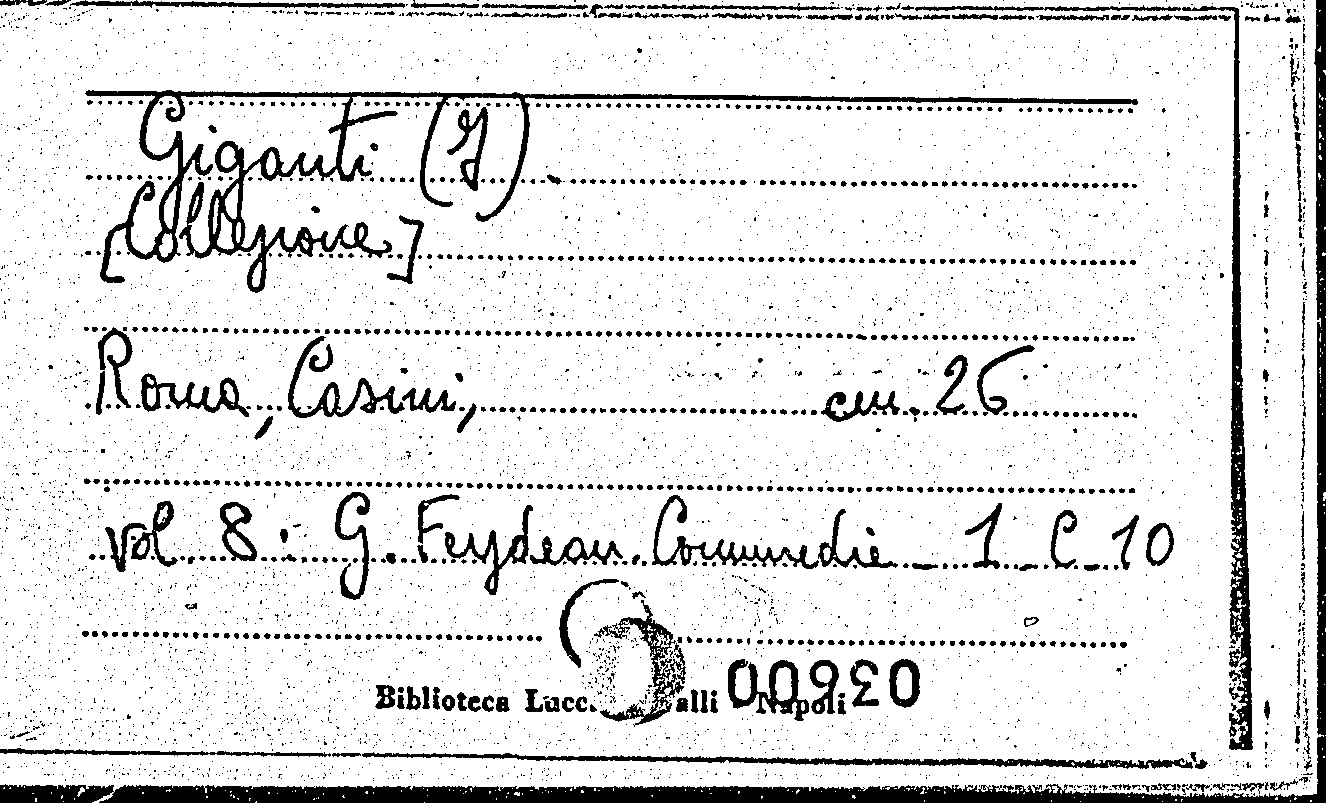 Giganti (I).
[Collezione]
Roma, Casini, cm. 26
vol. 8: G. Feydeau. Commedie _ 1_C_10
Biblioteca Lucc alli Napoli
03600